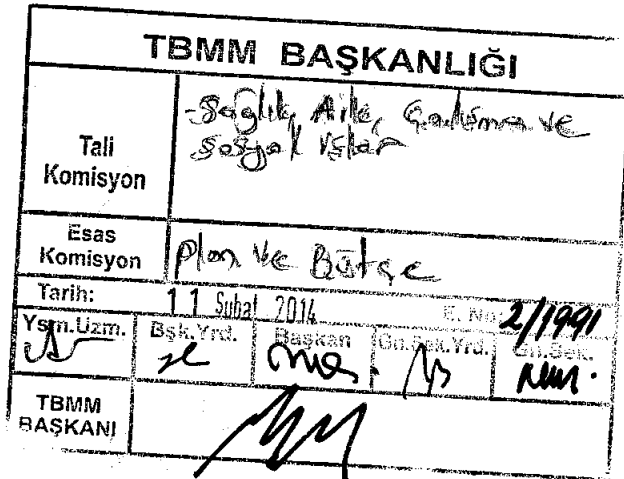 TBMM BAŞKANLIĞI
Tali
Komisyon
-Sağlık, Aile, Çalışma ve
Sosyal İşler
Esas
Komisyon
Plan ve Bütçe
Tarih:
11 Şubat 2014
E. No: 2/1991
Ysm.Uzm.
Bşk.Yrd.
Başkan
Gn.Sek.Yrd.
Gn.Sek.
TBMM
BAŞKANI